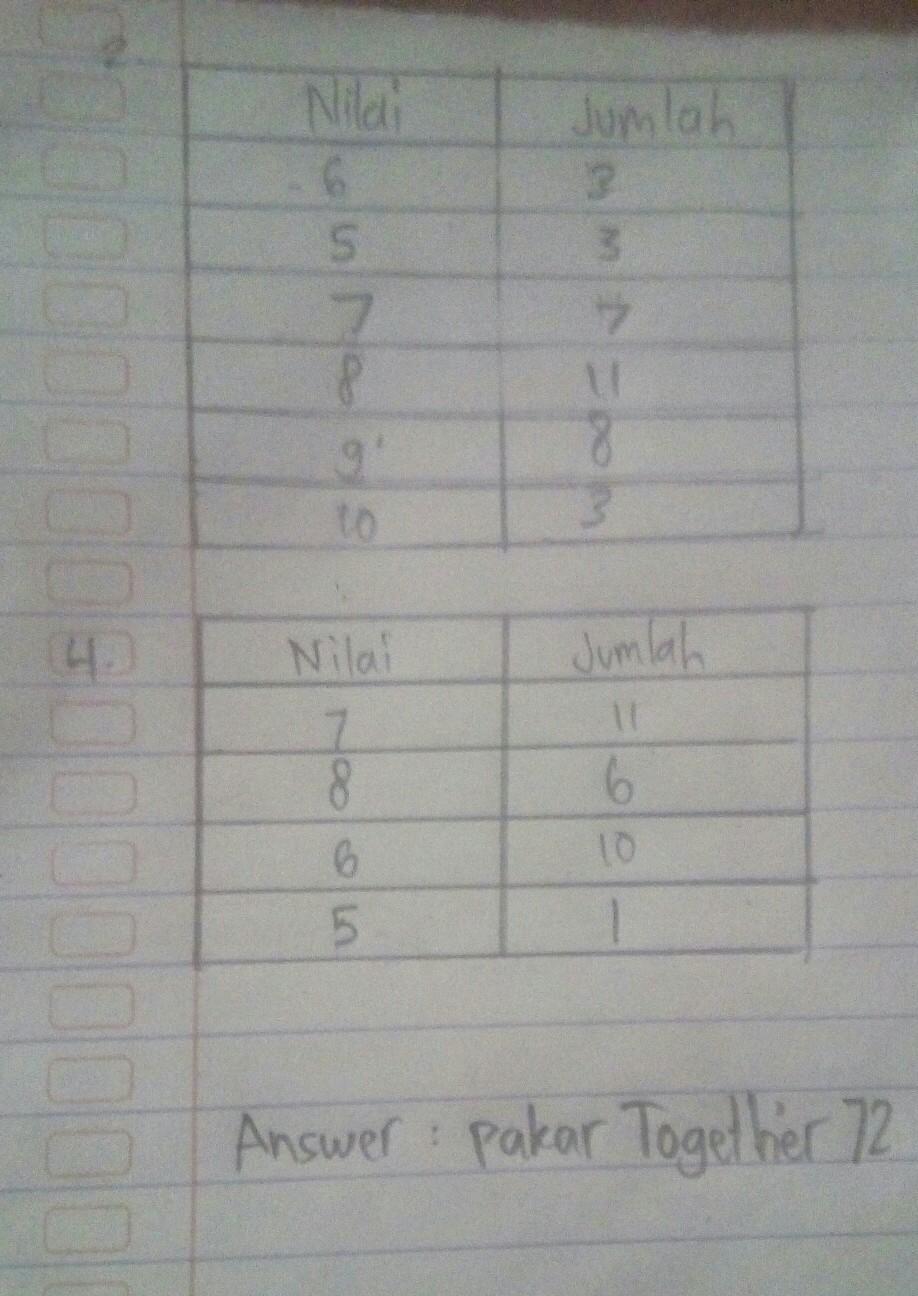 2.
Nilai Jumlah
6 3
5 3
7 7
8 11
9 8
10 3
4.
Nilai Jumlah
7 11
8 6
6 10
5 1
Answer : pakar Togethier 72